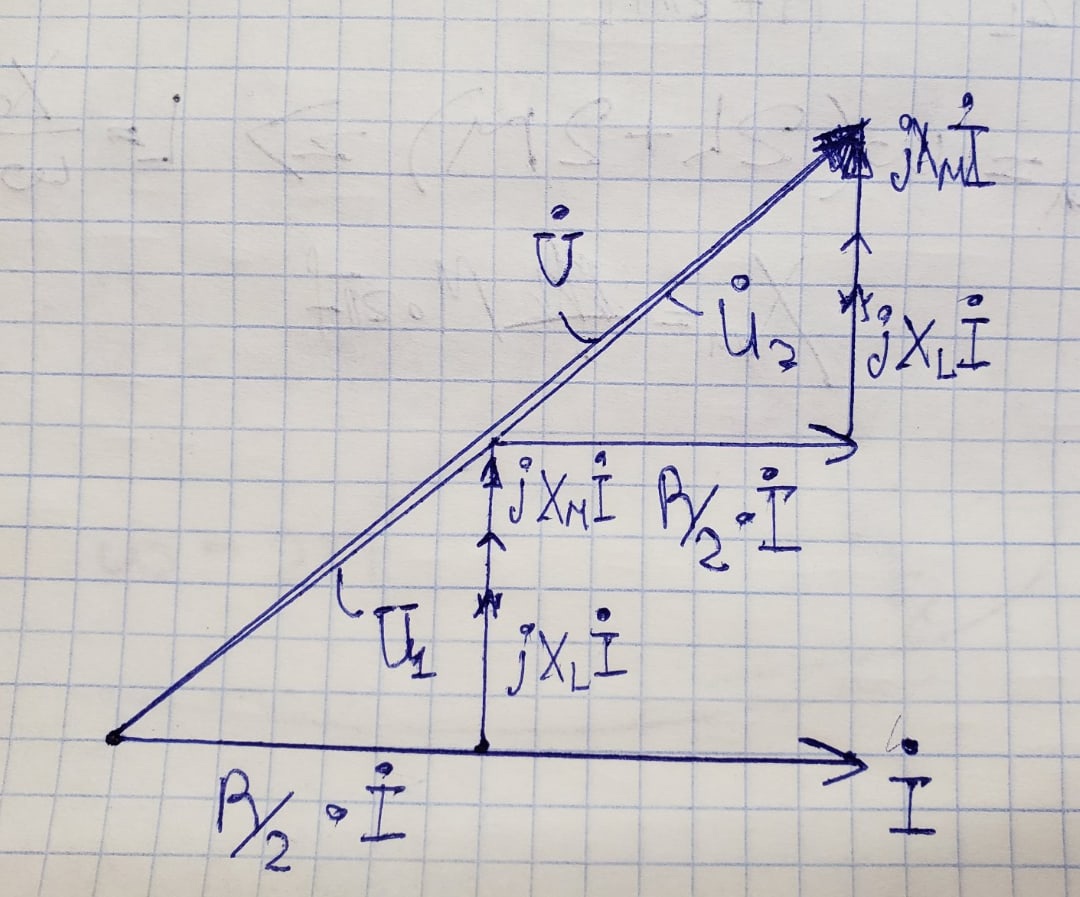 jXₘİ
U̇
U̇₂
jX_Lİ
jXₘİ
R/2 · İ
U₁
jX_Lİ
İ
R/2 · İ